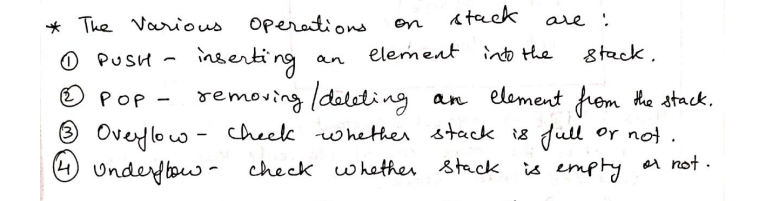 * The Various Operations on stack are :
① PUSH - inserting an element into the stack.
② POP - removing/deleting an element from the stack.
③ Overflow - Check whether stack is full or not.
④ Underflow - check whether stack is empty or not.